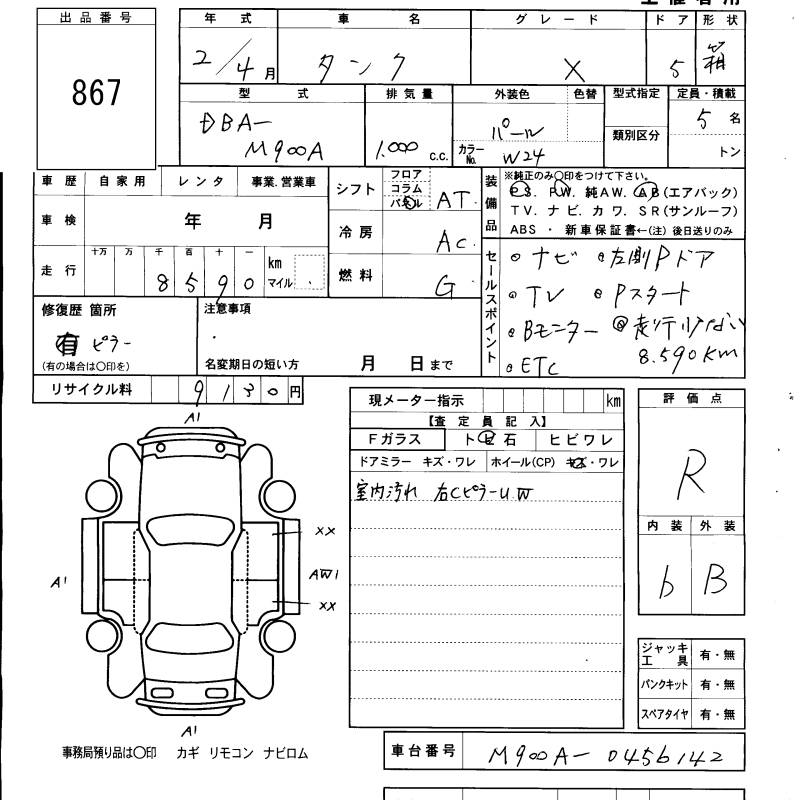 出品番号
867
年式 車名 グレード ドア 形状
2/4月 タンク X 5 箱
型式 排気量 外装色 色替 型式指定 定員・積載
DBA-
M900A
1.000 c.c.
パール
カラーNo. W24
類別区分
5名
トン
車歴 自家用 レンタ 事業.営業車
車検 年 月
走行 十万 万 千 百 十 一
8 5 9 0 km マイル
シフト フロア コラム パネル AT
冷房 AC
燃料 G
装備品
※純正のみ〇印をつけて下さい。
PS. PW. 純AW. AB(エアバック)
TV. ナビ. カワ. SR(サンルーフ)
ABS ・ 新車保証書←(注) 後日送りのみ
セールスポイント
ナビ 左側Pドア
TV Pスタート
Bモニター 走行少ない
ETC 8.590KM
修復歴 箇所
有 ピラー
(有の場合は〇印を)
注意事項
名変期日の短い方 月 日まで
リサイクル料 9130円
現メーター指示 km
【査定員記入】
Fガラス トビ石 ヒビワレ
ドアミラー キズ・ワレ ホイール(CP) キズ・ワレ
室内汚れ 右CピラーU W
評価点
R
内装 外装
b B
A1
XX
A1
AW1
XX
A1
ジャッキ工具 有・無
パンクキット 有・無
スペアタイヤ 有・無
事務局預り品は〇印 カギ リモコン ナビロム
車台番号 M900A-0456142